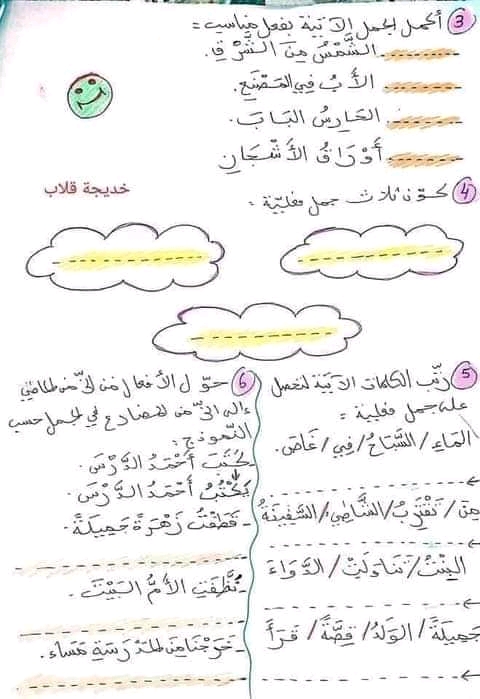 3 أكمل الجمل الآتية بفعل مناسب:
------ الشَّمْسُ مِنَ الشَّرْقِ.
------ الأَبُ فِي المَصْنَعِ.
------ الحَارِسُ البَابَ.
------ أَوْرَاقُ الأَشْجَارِ
خديجة قلاب
4 كوّن ثلاث جمل فعليّة:
5 رتّب الكلمات الآتية لتحصل
على جمل فعلية:
المَاءِ / السَّبَّاحُ / فِي / غَاصَ.
مِنَ / تَقْتَرِبُ / الشَّاطِئِ / السَّفِينَةُ
البِنْتُ / تَنَاوَلَتْ / الدَّوَاءَ
جَمِيلَةً / الوَلَدُ / قِصَّةً / قَرَأَ
6 حوّل الأفعال من الزّمن الماضي
إلى الزّمن المضارع في الجمل حسب
النّموذج:
كَتَبَ أَحْمَدُ الدَّرْسَ.
يَكْتُبُ أَحْمَدُ الدَّرْسَ.
- قَطَفْتُ زَهْرَةً جَمِيلَةً.
- نَظَّفَتِ الأُمُّ البَيْتَ.
- خَرَجْنَا مِنَ المَدْرَسَةِ مَسَاءً.